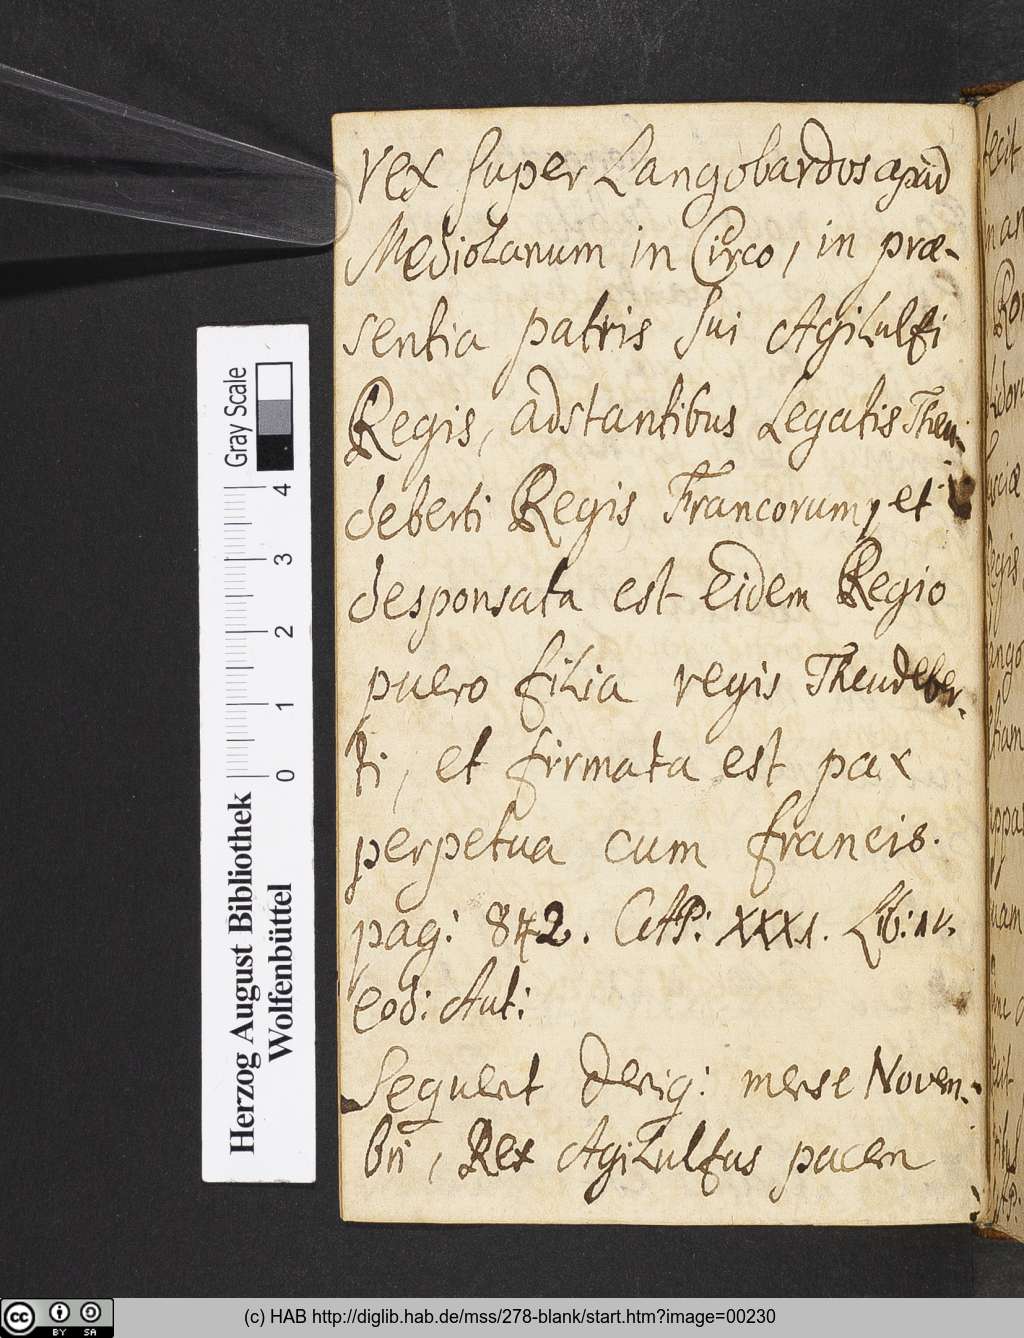 rex super Langobardos apud
Mediolanum in Circo, in præ-
sentia patris sui Agilulfi
Regis, adstantibus Legatis Theu-
deberti Regis Francorum, et
desponsata est Eidem Regio
puero filia regis Theudeber-
ti, et firmata est pax
perpetua cum francis.
pag: 842. CAP: XXXI. Lib: IV.
eod: Aut:
Sequent mense Novem-
bri, Rex Agilulfus pacem
Gray Scale
0 1 2 3 4
Herzog August Bibliothek
Wolfenbüttel
cc BY SA
(c) HAB http://diglib.hab.de/mss/278-blank/start.htm?image=00230